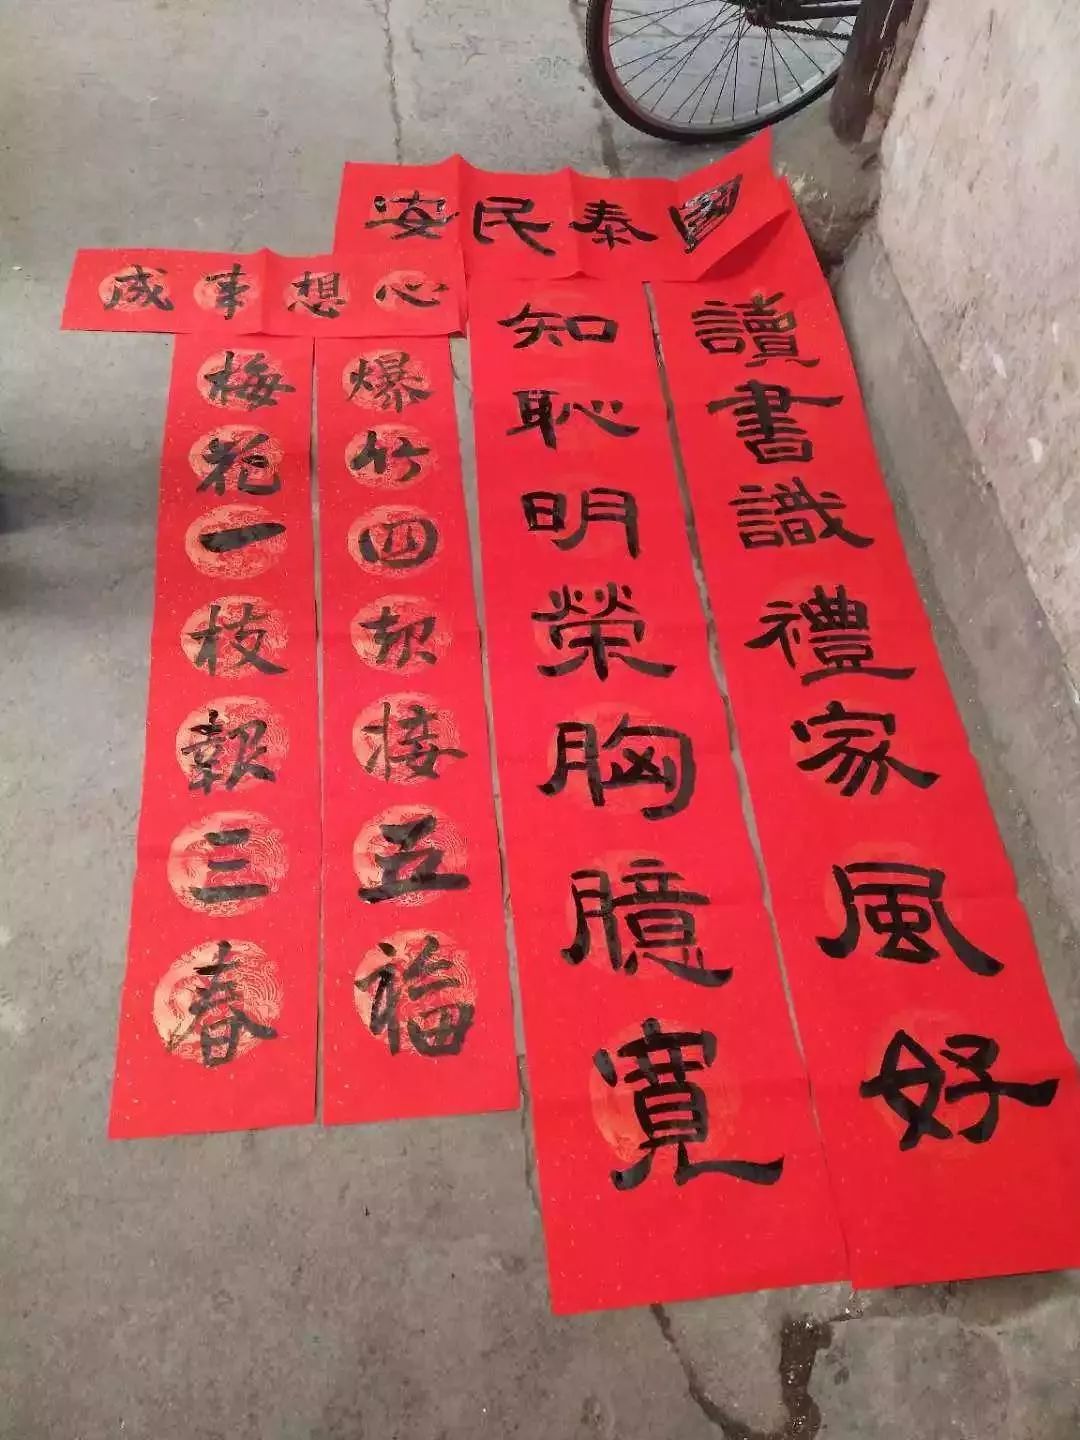 國泰民安
讀書識禮家風好
知恥明榮胸臆寬
心想事成
爆竹四起接五福
梅花一枝報三春